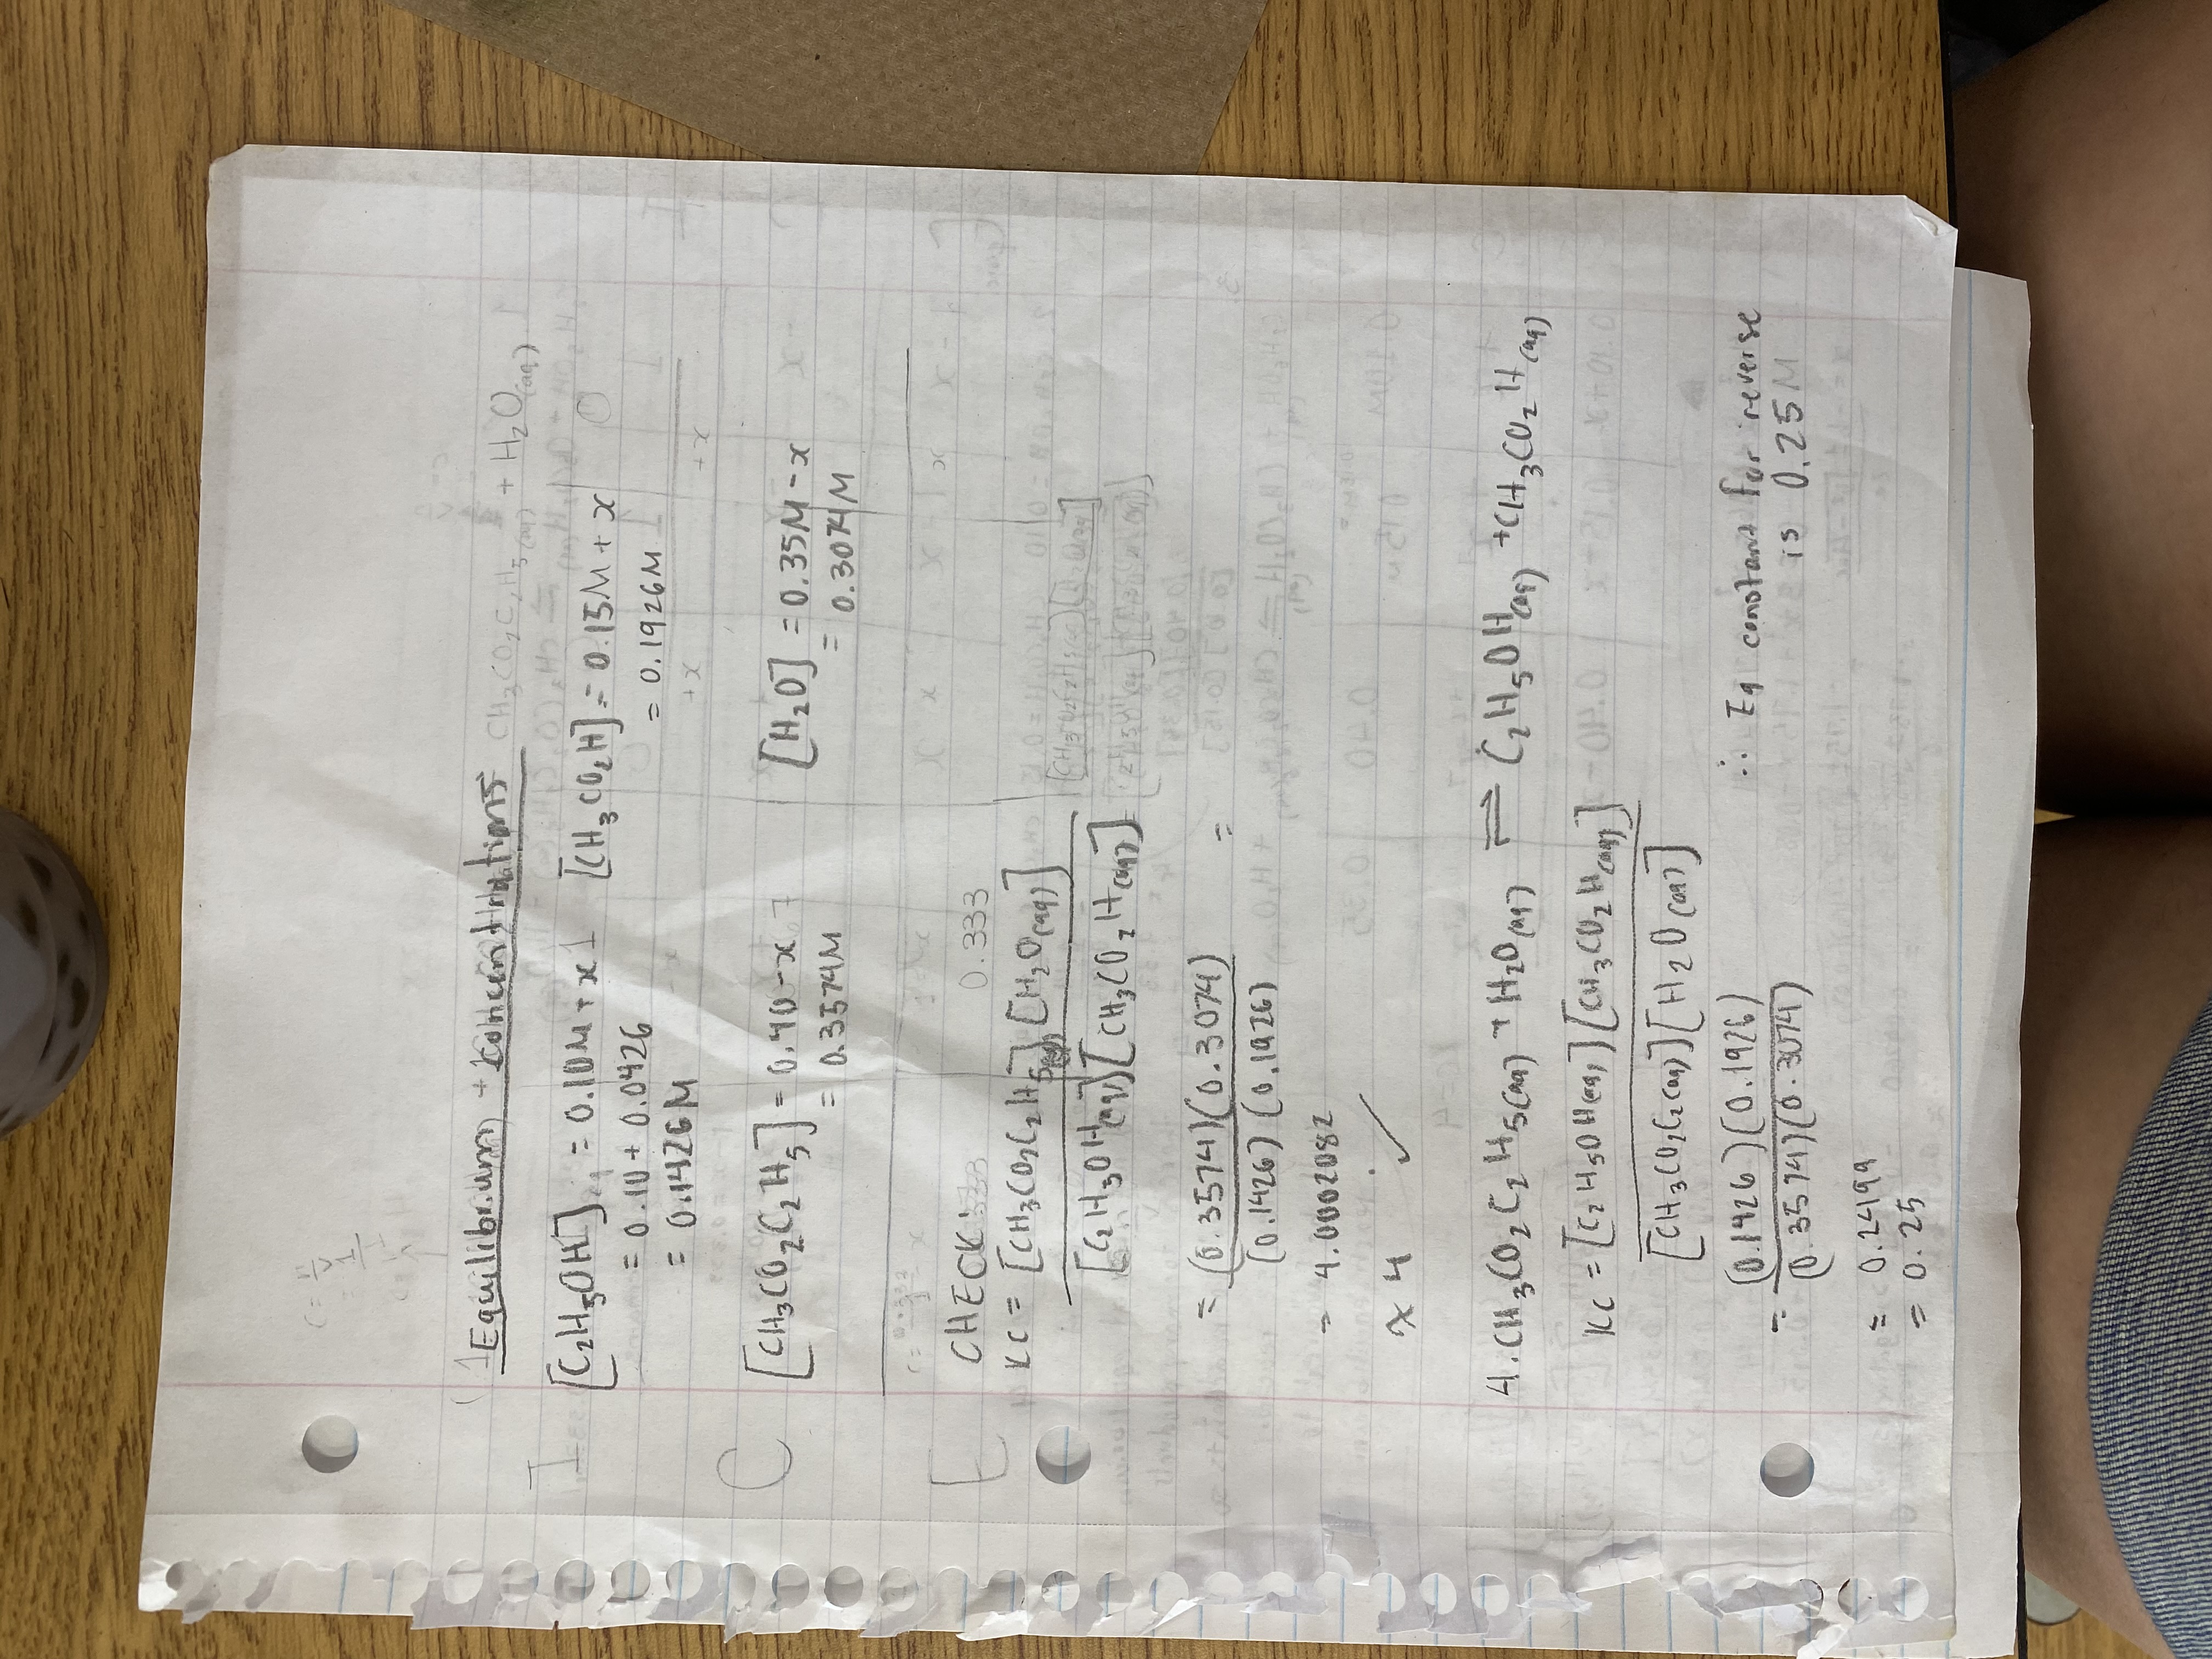 Equilibrium concentrations
CH₃CO₂C₂H₅(aq) + H₂O(aq)
[C₂H₅OH]eq = 0.10M + x
= 0.10 + 0.0426
= 0.1426M
[CH₃CO₂H] = 0.15M + x
= 0.1926M
+x +x
[CH₃CO₂C₂H₅] = 0.40 - x
= 0.3574M
[H₂O] = 0.35M - x
= 0.3074M
I
C
E
CHECK:
0.333
Kc = [CH₃CO₂C₂H₅(aq)][H₂O(aq)]
[C₂H₅OH(aq)][CH₃CO₂H(aq)]
= (0.3574)(0.3074)
(0.1426)(0.1926)
=
= 4.0002082
≈ 4 ✓
4. CH₃CO₂C₂H₅(aq) + H₂O(aq) ⇌ C₂H₅OH(aq) + CH₃CO₂H(aq)
Kc = [C₂H₅OH(aq)][CH₃CO₂H(aq)]
[CH₃CO₂C₂(aq)][H₂O(aq)]
= (0.1426)(0.1926)
(0.3574)(0.3074)
= 0.2499
= 0.25
∴ Eq constant for reverse
is 0.25M